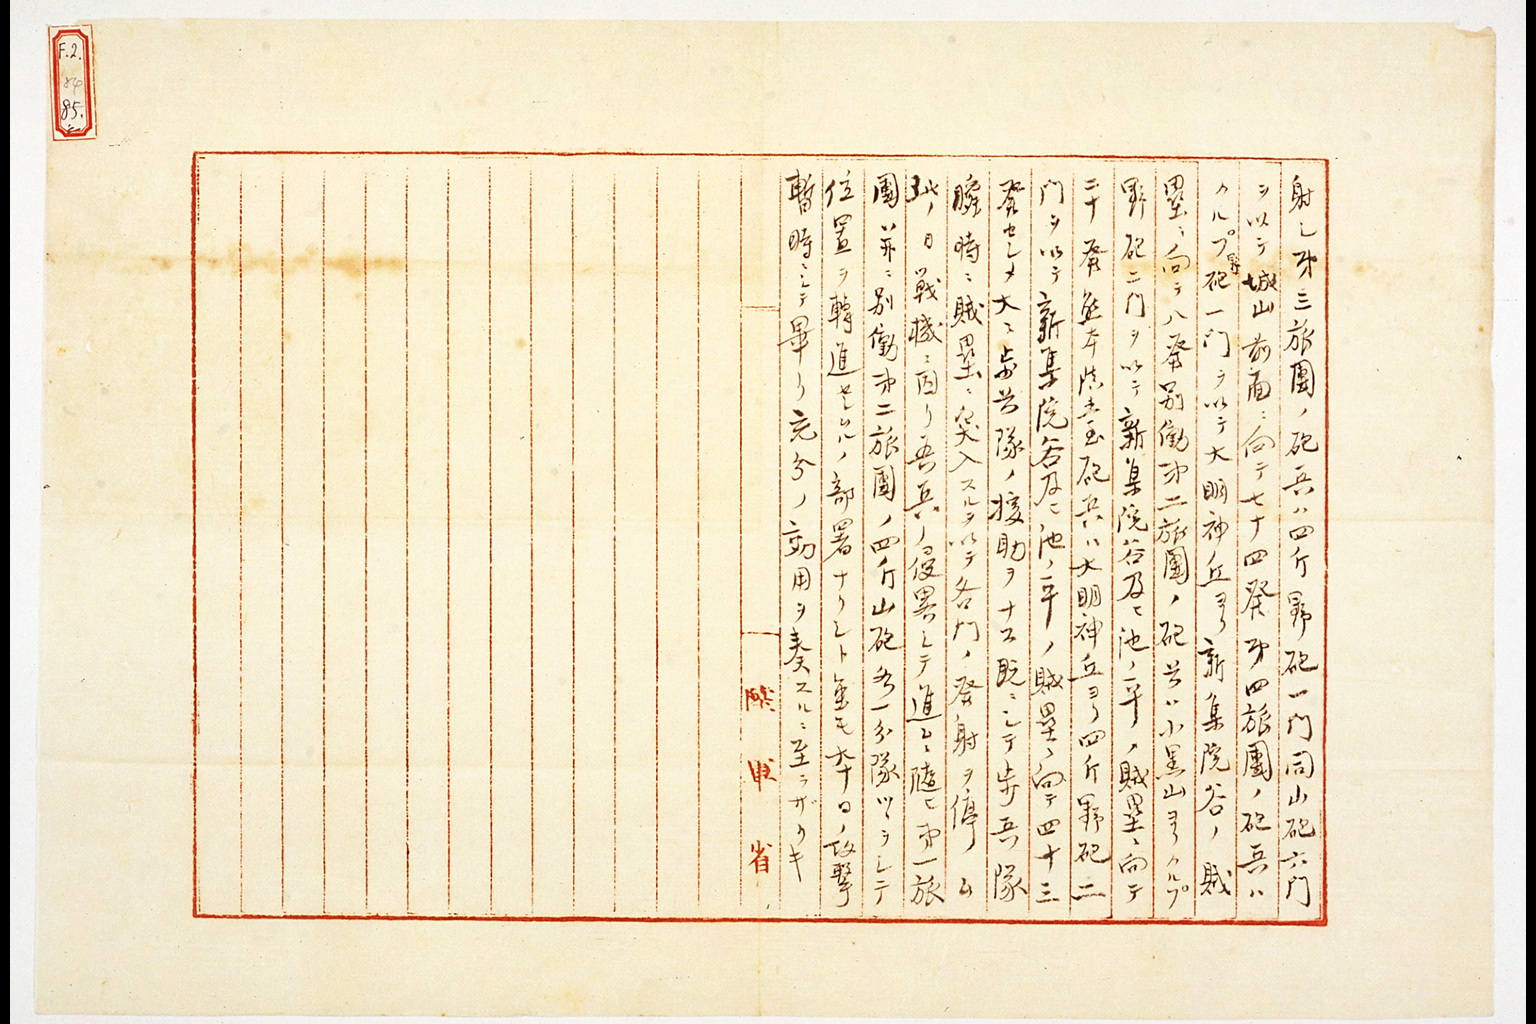 射シ第三旅團ノ砲兵ハ四斤野砲一門同山砲六門
ヲ以テ城山前面ニ向テ七十四発第四旅團ノ砲兵ハ
クルプ野砲一門ヲ以テ大明神丘ヨリ新集院谷ノ賊
塁ニ向テ八発別働第二旅團ノ砲兵ハ小黒山ヨリクルプ
野砲二門ヲ以テ新集院谷及ヒ池ノ平ノ賊塁ニ向テ
二十発熊本鎮台砲兵ハ大明神丘ヨリ四斤野砲二
門ヲ以テ新集院谷及ヒ池ノ平ノ賊塁ニ向テ四十三
発セシメ大ニ歩兵隊ノ援助ヲナス既ニシテ歩兵隊
瞬時ニ賊塁ニ突入スルヲ以テ各門ノ発射ヲ停ム
此ノ日戦機ニ因リ吾兵ノ侵畧シテ進ムニ随ヒ第一旅
團并ニ別働第二旅團ノ四斤山砲各一分隊ツヽヲシテ
位置ヲ轉進セシムルノ部署ナリシト雖モ本日ノ攻撃
暫時ニシテ畢リ充分ノ効用ヲ奏スルニ至ラザリキ
陸軍省
F.2.
84
85.